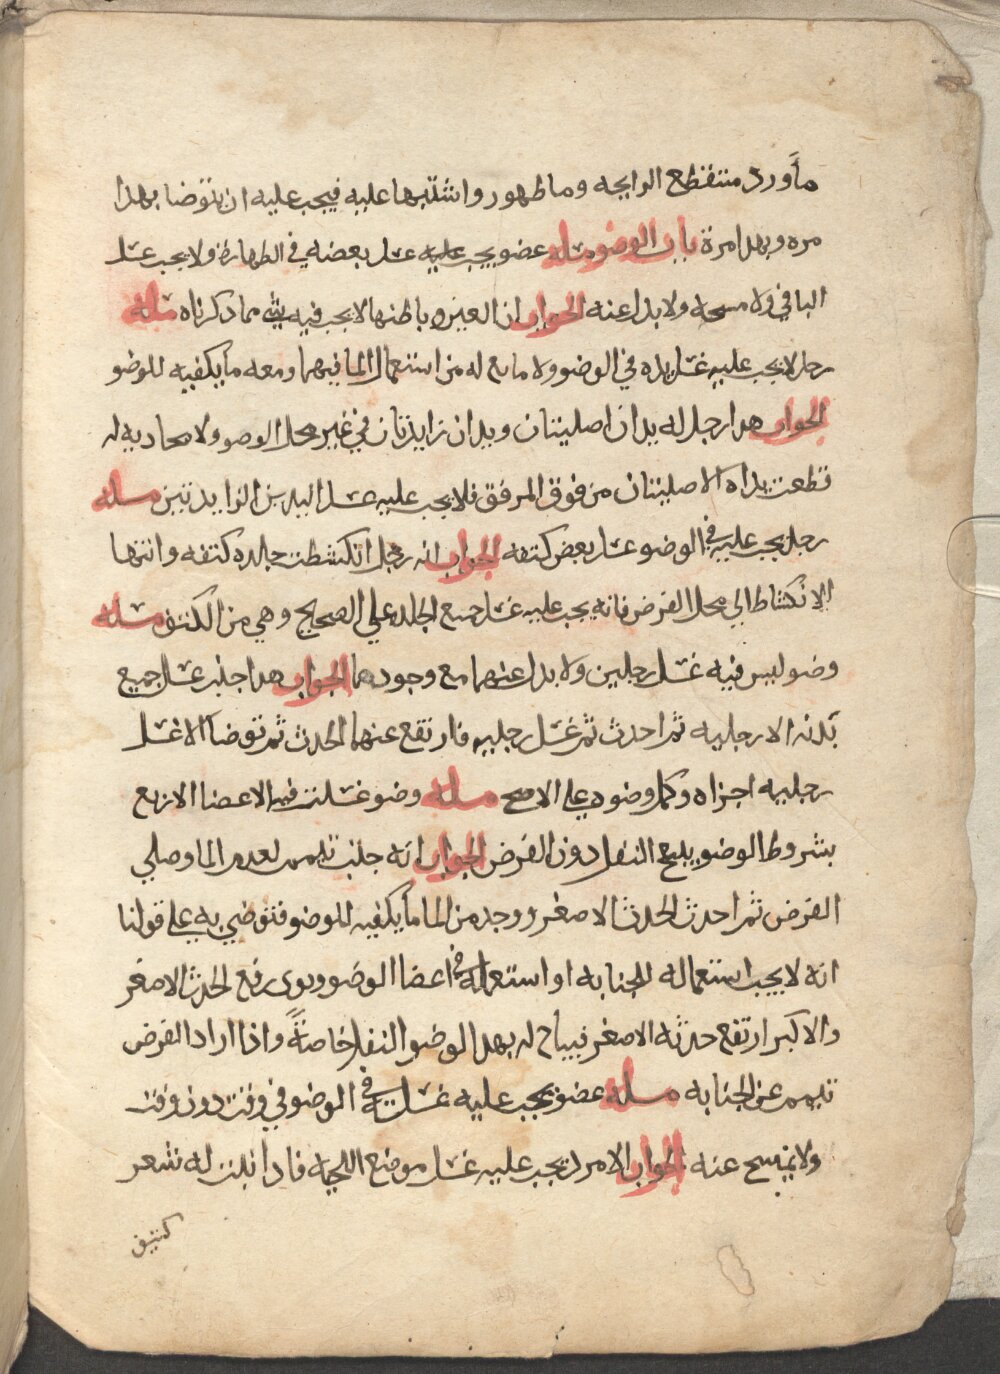 ماورد منتقطع الرايحه وما طهور واشتبها عليه فيجب عليه ان يتوضا بهدا
مره وبهدا مرة باب الوضو مسله عضو يجب عليه غسل بعضه في الطهارة ولا يجب غسل
الباقي ولا مسحه ولا بدل عنه الجواب ان العين وباطنها لا يجب فيه شي مما دكرناه مسله
رجل لا يجب عليه غسل يده في الوضو ولا مانع له من استعمال الما فيهما ومعه ما يكفيه للوضو
الجواب هدا رجل له يدان اصليتان ويدان زايدتان في غير محل الوضو ولا محاديه له
قطعت يداه الاصليتان من فوق المرفق فلا يجب عليه غسل اليدين الزايدتين مسله
رجل يجب عليه في الوضو غسل بعض كتفه الجواب انه رجل انكشطت جلدة كتفه وانتها
الانكشاط الي محل الفرض فانه يجب عليه غسل جميع الجلده علي الصحيح وهي من الكتف مسله
وضو ليس فيه غسل رجلين ولا بدل عنهما مع وجودهما الجواب هدا جنب غسل جميع
بدنه الا رجليه ثم احدث ثم غسل رجليه فارتفع عنهما الحدث ثم توضا الا غسل
رجليه اجزاه وكمل وضوه علي الاصح مسله وضو غسلت فيه الاعضا الاربع
بشروط الوضو يبيح النفل دون الفرض الجواب انه جنب تيمم لعدم الما وصلي
الفرض ثم احدث الحدث الاصغر ووجد من الما ما يكفيه للوضو فتوضي به علي قولنا
انه لا يجب استعماله للجنابه او استعمله في اعضا الوضو ونوي رفع الحدث الاصغر
والاكبر ارتفع حدثه الاصغر فيباح له بهدا الوضو النفل خاصة واذا اراد الفرض
تيمم عن الجنابه مسله عضو يجب عليه غسله في الوضو في وقت دون وقت
ولا يمسح عنه الجواب الامرد يجب عليه غسل موضع اللحيه فادا نبت له شعر
كثيف